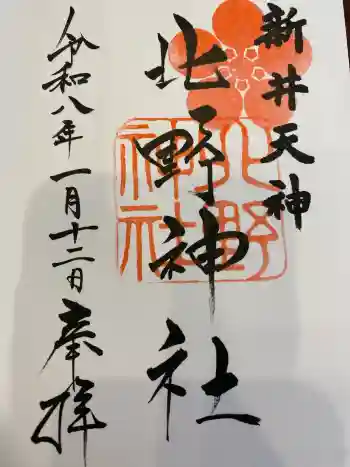 新井天神
北野神社
北野
神社
令和八年一月十二日
奉拝